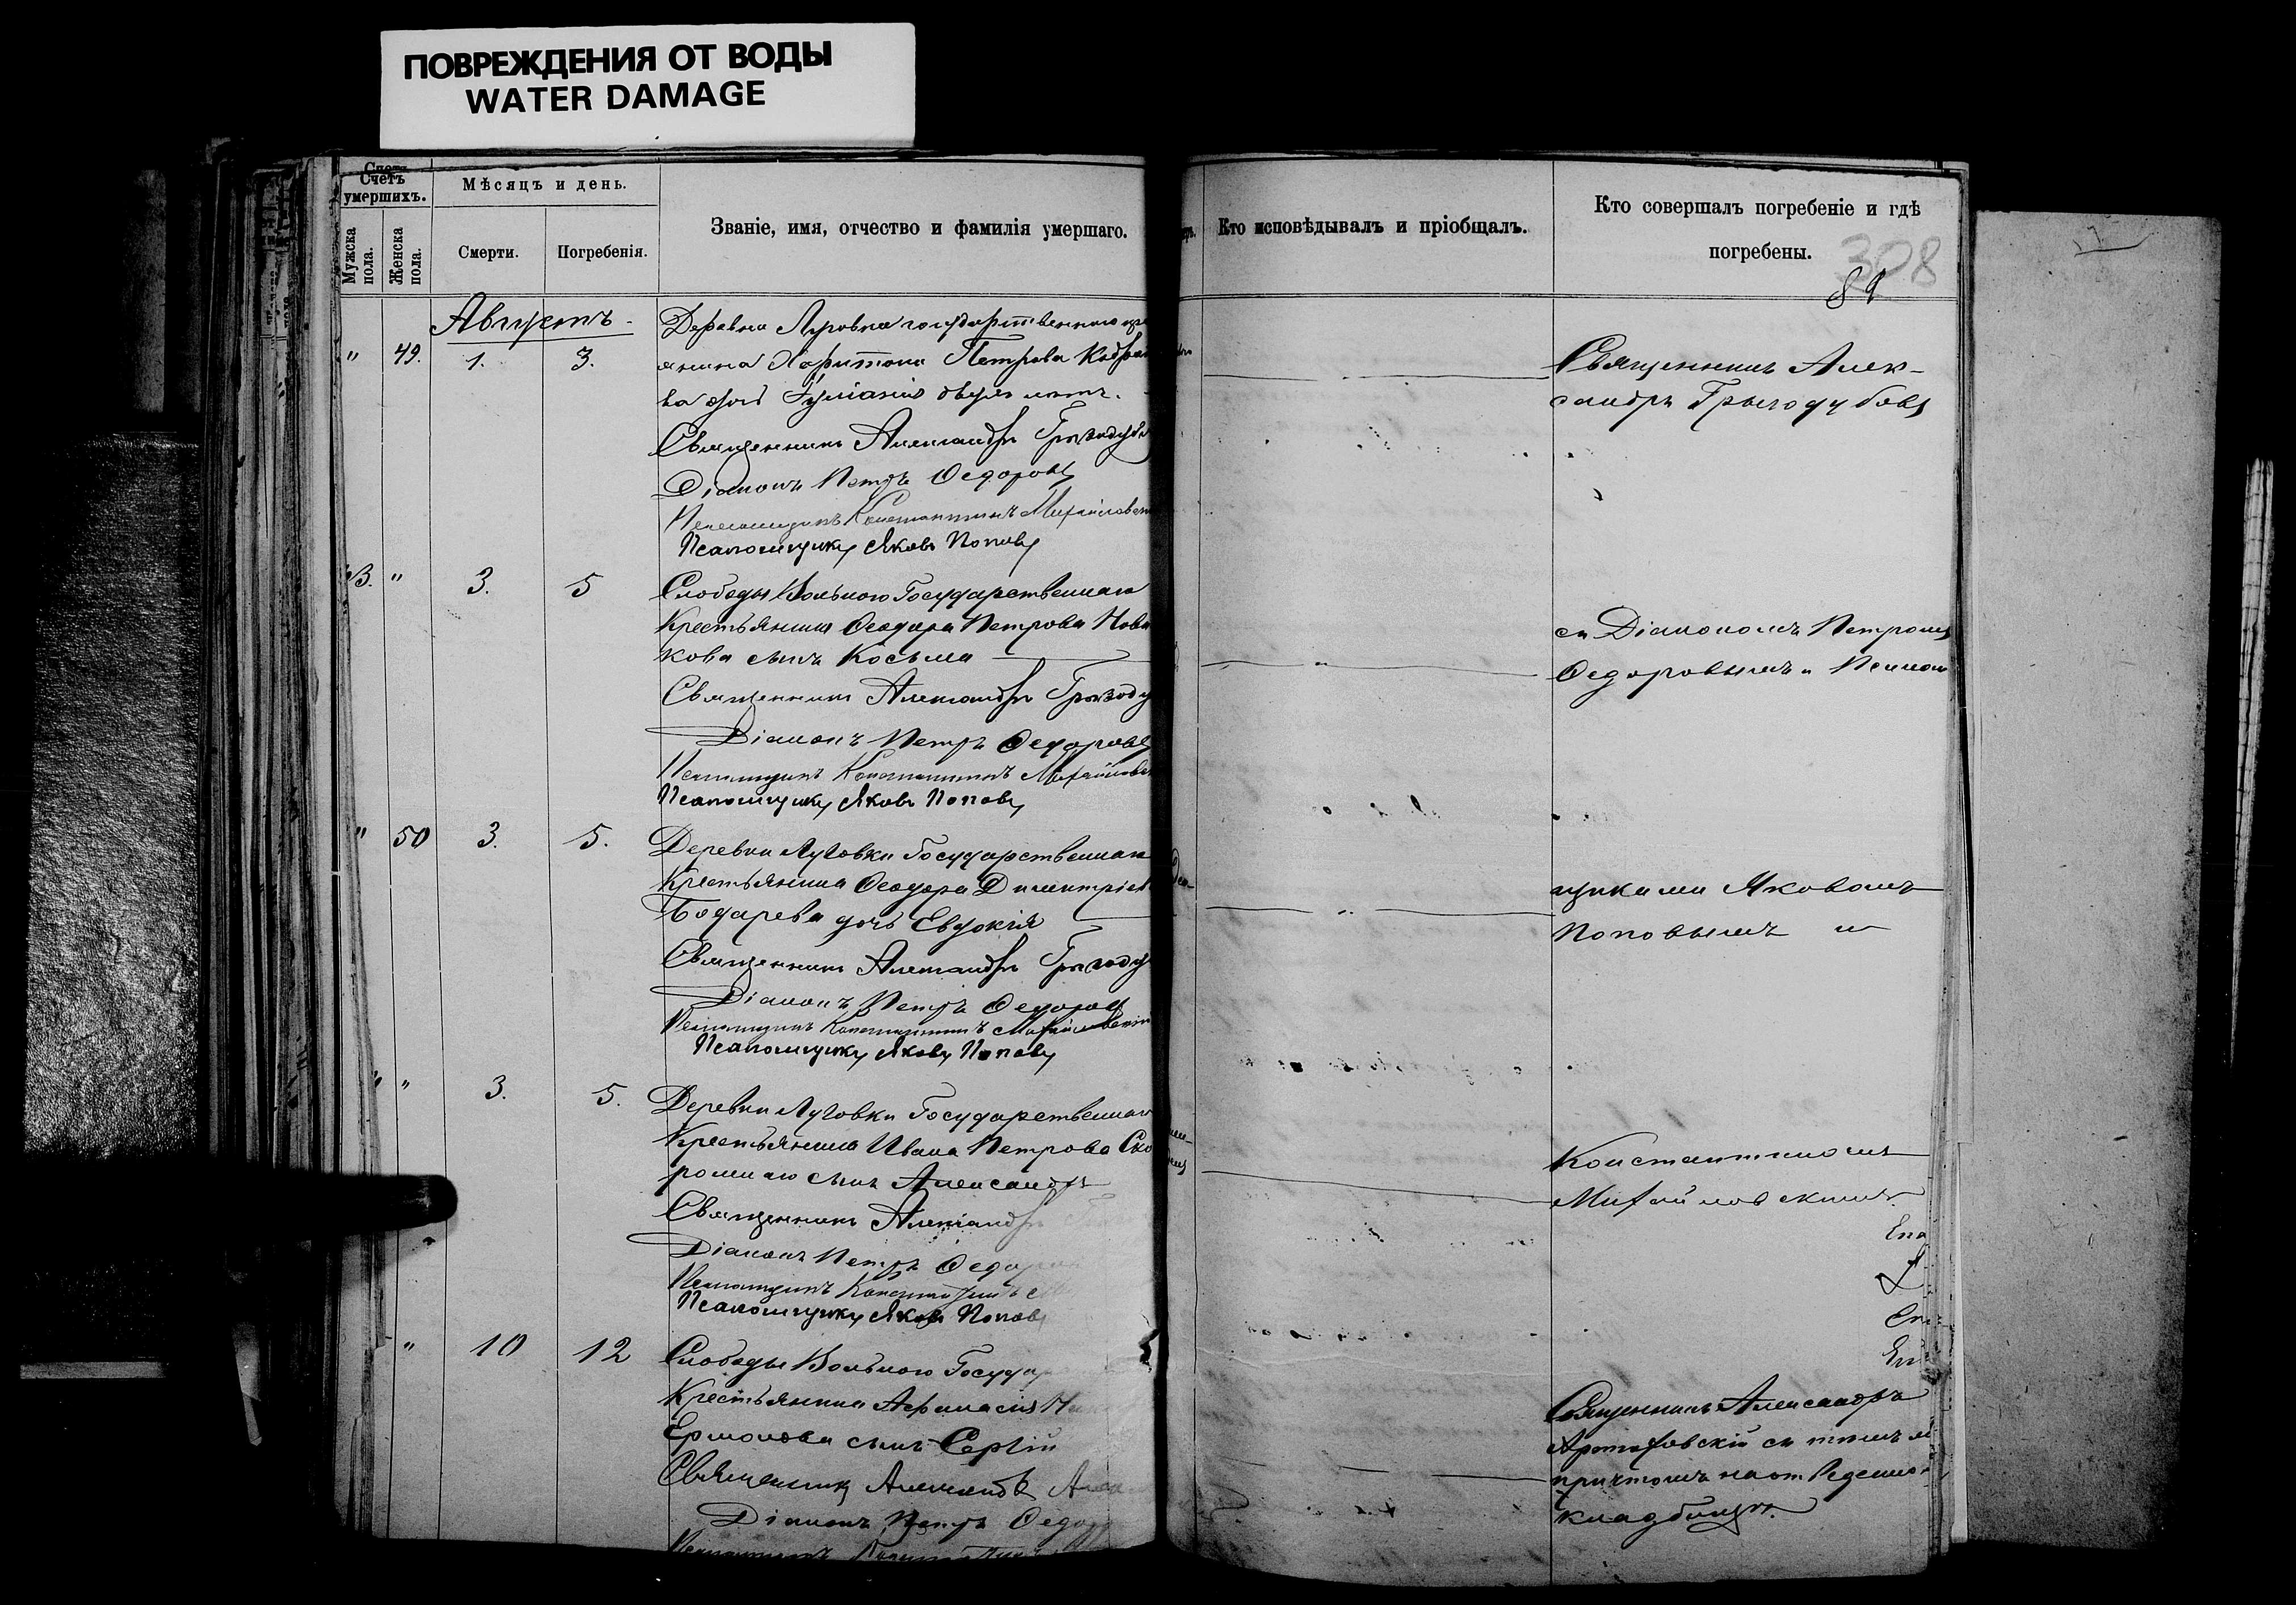 ПОВРЕЖДЕНИЯ ОТ ВОДЫ
WATER DAMAGE
Счетъ
умершихъ.
Мужска
пола.
Женска
пола.
Мѣсяцъ и день.
Смерти.
Погребенія.
Званіе, имя, отчество и фамилія умершаго.
Августъ
" 49. 1. 3.
Деревни Луговки государственнаго кре
янина Харитона Петрова
ва дочь двухъ лѣтъ.
Священникъ Александръ
Діаконъ Петръ Ѳедоровъ
Псаломщикъ Константинъ Михайловскі
Псаломщикъ Яковъ Поповъ
" 3. 5
Слободы Вольного Государственнаго
Крестьянина Ѳеодора Петрова Нови
кова сынъ Косьма
Священникъ Александръ
Діаконъ Петръ Ѳедоровъ
Псаломщикъ Константинъ Михайловск
Псаломщикъ Яковъ Поповъ
" 50 3. 5.
Деревни Луговки Государственнаго
Крестьянина Ѳеодора Димитріев
Бодарева дочь Евдокія
Священникъ Александръ
Діаконъ Петръ Ѳедоровъ
Псаломщикъ Константинъ Михайловскій
Псаломщикъ Яковъ Поповъ
" 3. 5.
Деревни Луговки Государственнаго
Крестьянина Ивана Петрова Ско
ромнаго сынъ Александръ
Священникъ Александръ
Діаконъ Петръ Ѳедоров
Псаломщикъ Константинъ
Псаломщикъ Яковъ Поповъ
" 10 12
Слободы Вольного Государ
Крестьянина Аѳанасія
Ермолова сынъ Сергій
Священникъ Александръ
Діаконъ Петръ Ѳедор
Кто исповѣдывалъ и пріобщалъ.
Кто совершалъ погребеніе и гдѣ
погребены.
308
89
Священникъ Алек-
сандръ
съ Діакономъ Петромъ
Ѳедоровымъ и Псалом
щиками Яковомъ
Поповымъ и
Константиномъ
Михайловскимъ.
Священникъ Александръ
съ тѣмъ же
причтомъ на отведенно
кладбищѣ.